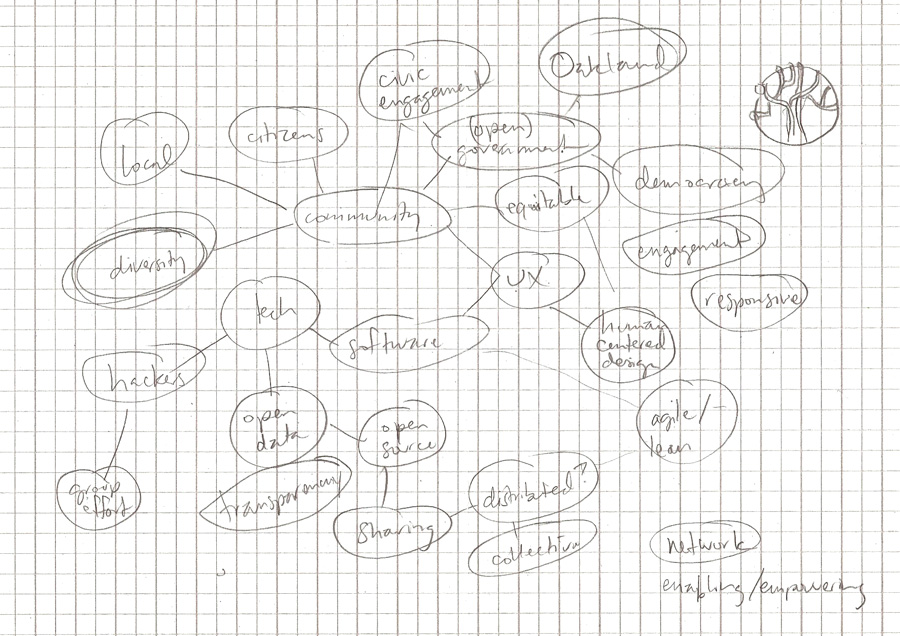 civic
engagement
Oakland
citizens
(open)
government
local
democracy
equitable
community
engagement
diversity
UX
responsive
tech
software
human
centered
design
hackers
open
data
open
source
agile/
lean
group
effort
transparency
distributed?
sharing
collective
network
enabling/empowering